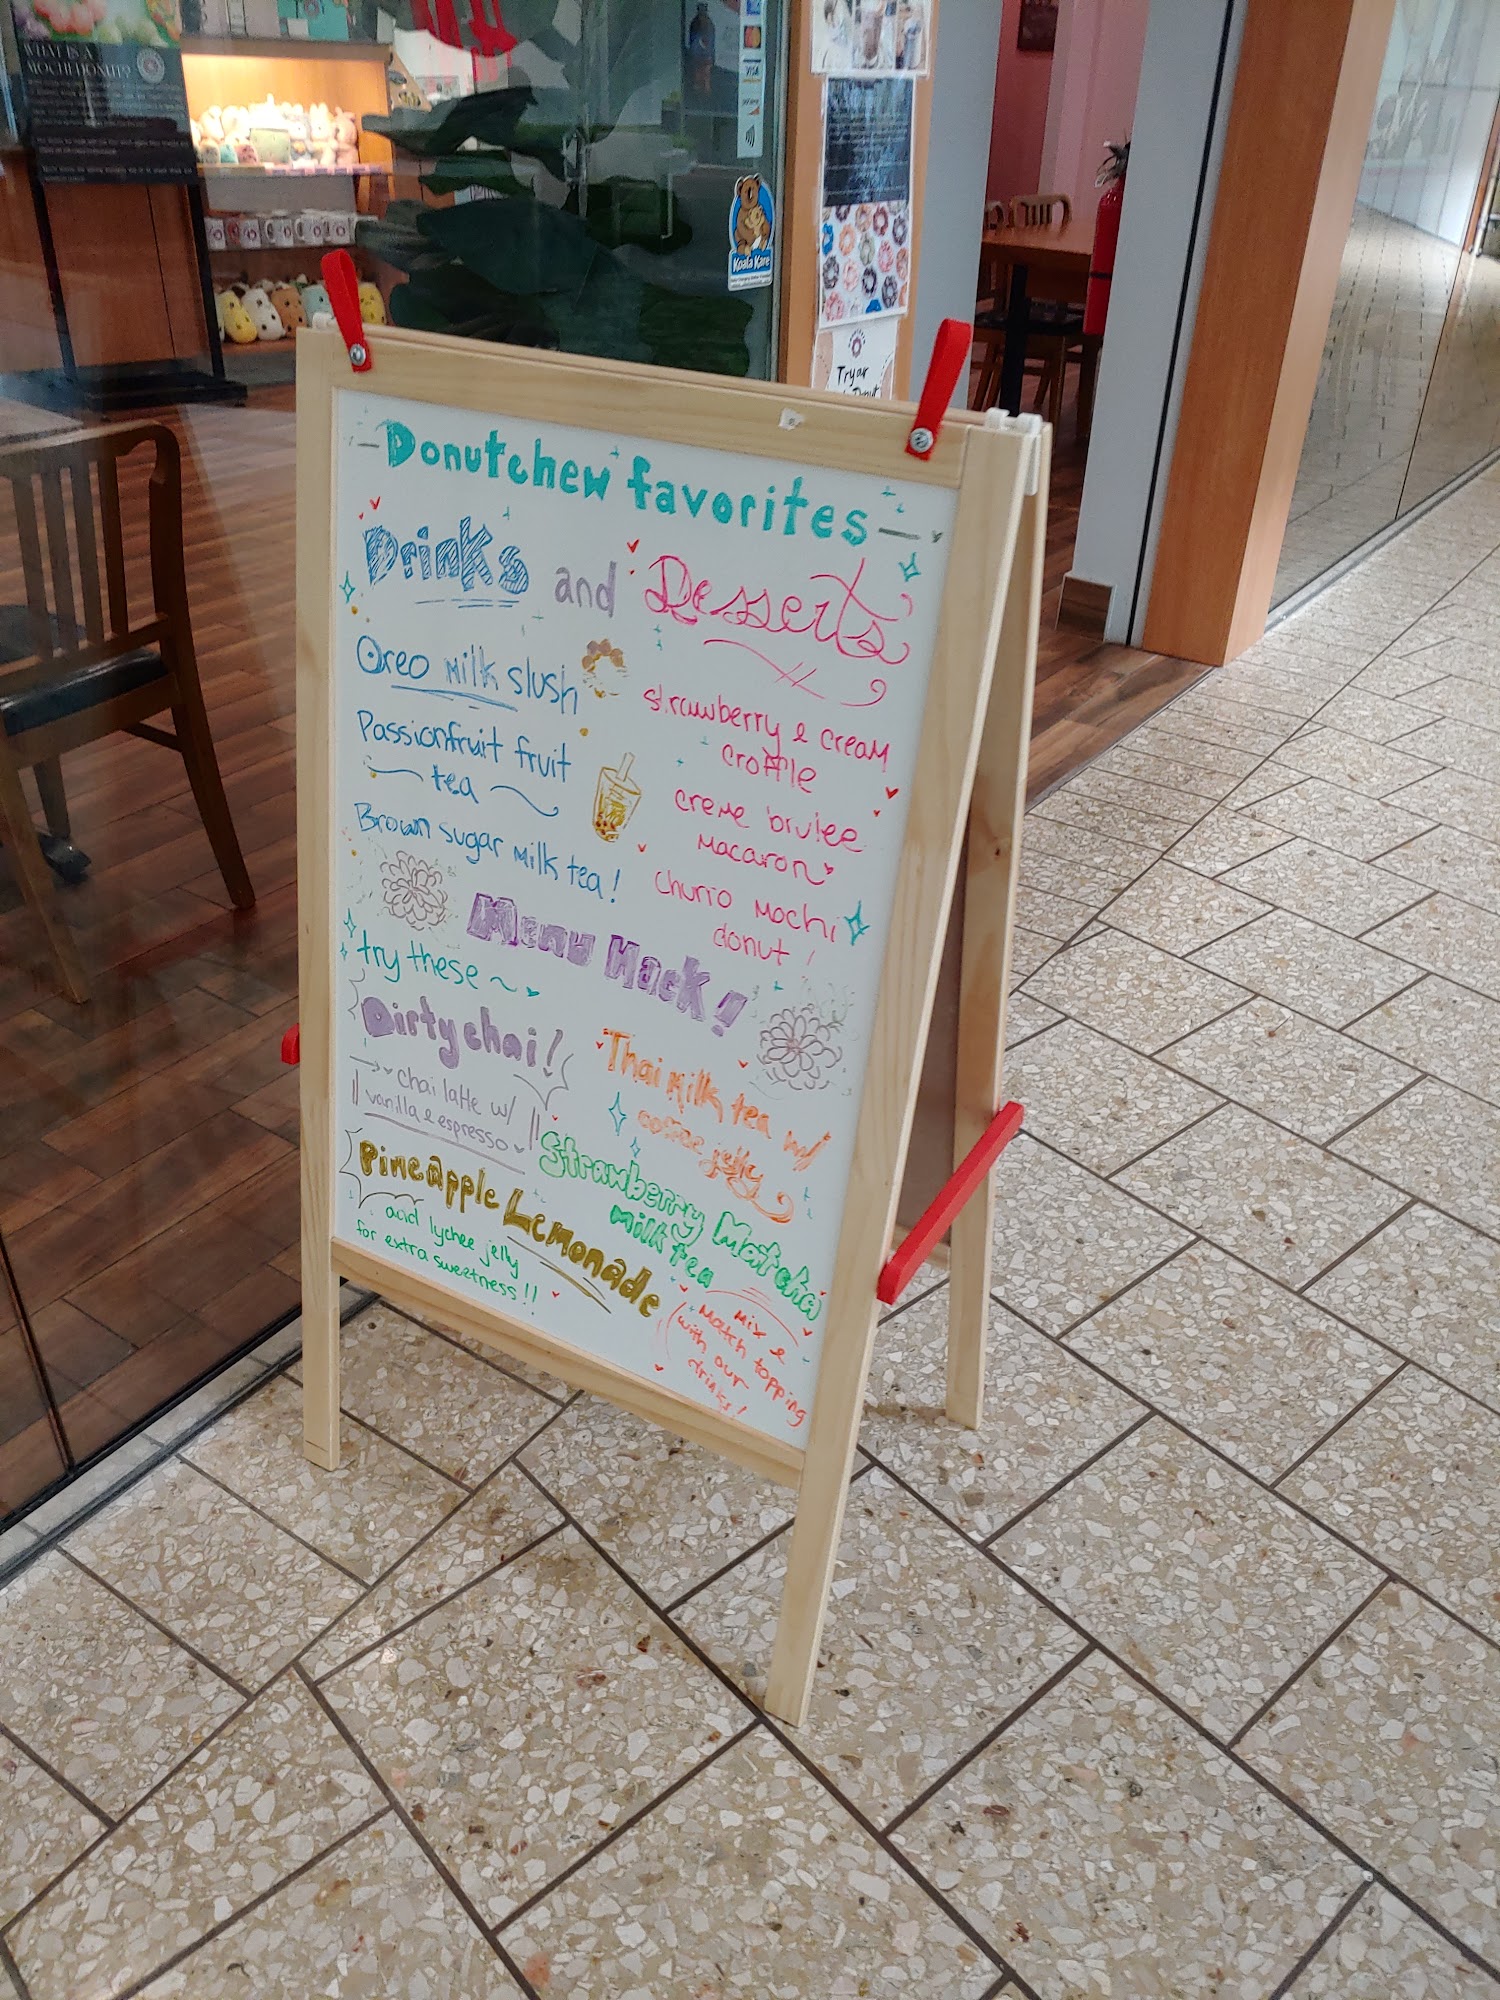 WHAT IS A
MOCHI DONUT?
VISA
Koala Kare
Try our
Donut
- Donutchew favorites -
Drinks and Desserts
Oreo Milk slush
Passionfruit fruit
tea
Brown sugar milk tea!
strawberry & cream
croffle
creme brulee
Macaron
churro Mochi
donut!
Menu Hack!
try these ~
Dirty chai!
→ chai latte w/
vanilla & espresso
Thai milk tea w/
coffee jelly
Pineapple Lemonade
and lychee jelly
for extra sweetness!!
Strawberry Matcha
Milk tea
Mix &
Match topping
with our
drinks!